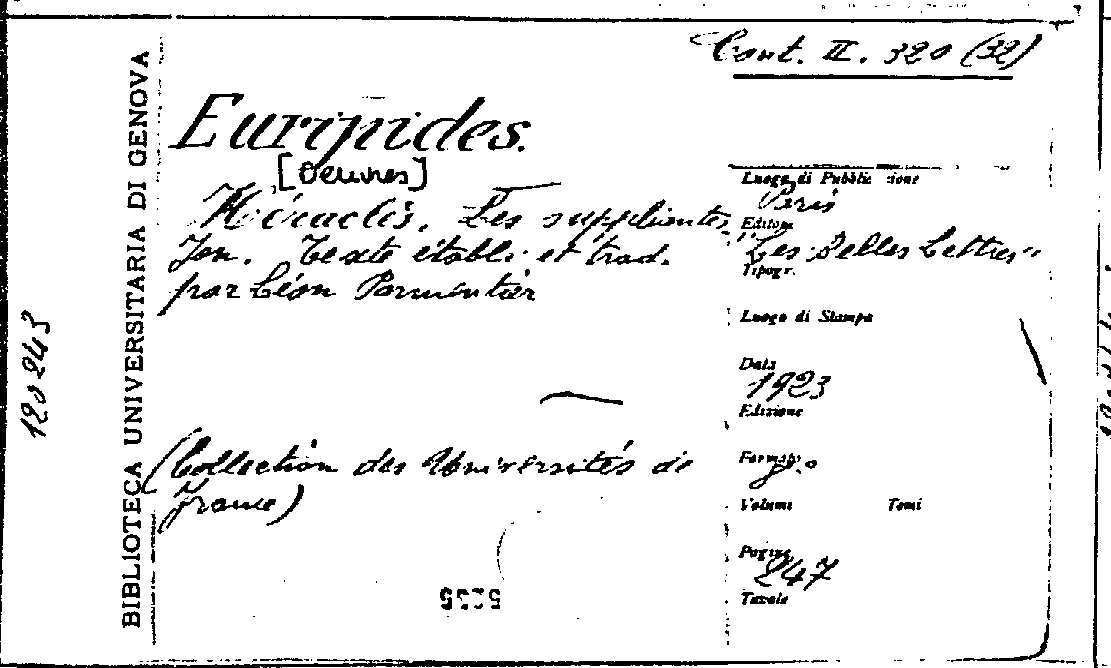 Cont. II. 320 (32)
BIBLIOTECA UNIVERSITARIA DI GENOVA
120243
Euripides.
[Oeuvres]
Héraclès. Les suppliantes
Ion. Texte établi et trad.
par Léon Parmentier
(Collection des Universités de
France)
5235
Luogo di Pubblicazione
Paris
Editore
"Les Belles Lettres"
Tipogr.
Luogo di Stampa
Data
1923
Edizione
Formato
8.o
Volumi Tomi
Pagine
247
Tavole